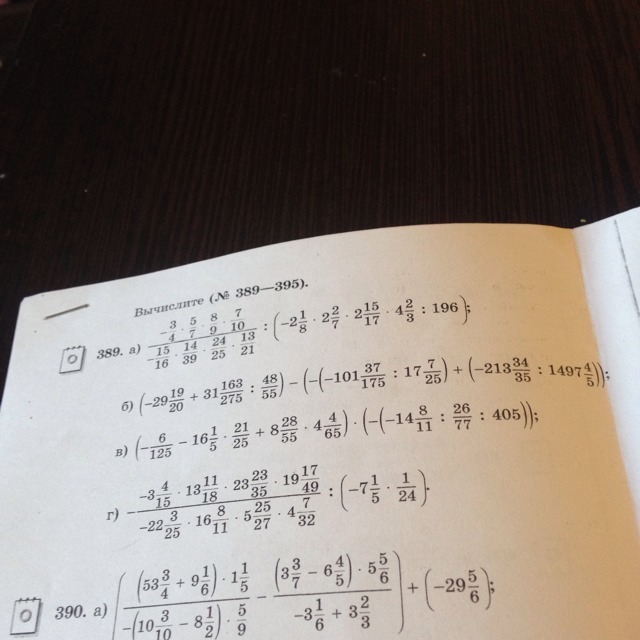 Вычислите (№ 389—395).
389. а) \frac{-\frac{3}{4} \cdot \frac{5}{7} \cdot \frac{8}{9} \cdot \frac{7}{10}}{-\frac{15}{16} \cdot \frac{14}{39} \cdot \frac{24}{25} \cdot \frac{13}{21}} : \left(-2\frac{1}{8} \cdot 2\frac{2}{7} \cdot 2\frac{15}{17} \cdot 4\frac{2}{3} : 196\right);
б) \left(-29\frac{19}{20} + 31\frac{163}{275} : \frac{48}{55}\right) - \left(-\left(-101\frac{37}{175} : 17\frac{7}{25}\right) + \left(-213\frac{34}{35} : 1497\frac{4}{5}\right)\right);
в) \left(-\frac{6}{125} - 16\frac{1}{5} \cdot \frac{21}{25} + 8\frac{28}{55} \cdot 4\frac{4}{65}\right) \cdot \left(-\left(-14\frac{8}{11} : \frac{26}{77} : 405\right)\right);
г) -\frac{-3\frac{4}{15} \cdot 13\frac{11}{18} \cdot 23\frac{23}{35} \cdot 19\frac{17}{49}}{-22\frac{3}{25} \cdot 16\frac{8}{11} \cdot 5\frac{25}{27} \cdot 4\frac{7}{32}} : \left(-7\frac{1}{5} \cdot \frac{1}{24}\right).
390. а) \left(\frac{\left(53\frac{3}{4} + 9\frac{1}{6}\right) \cdot 1\frac{1}{5}}{-\left(10\frac{3}{10} - 8\frac{1}{2}\right) \cdot \frac{5}{9}} - \frac{\left(3\frac{3}{7} - 6\frac{4}{5}\right) \cdot 5\frac{5}{6}}{-3\frac{1}{6} + 3\frac{2}{3}}\right) + \left(-29\frac{5}{6}\right);